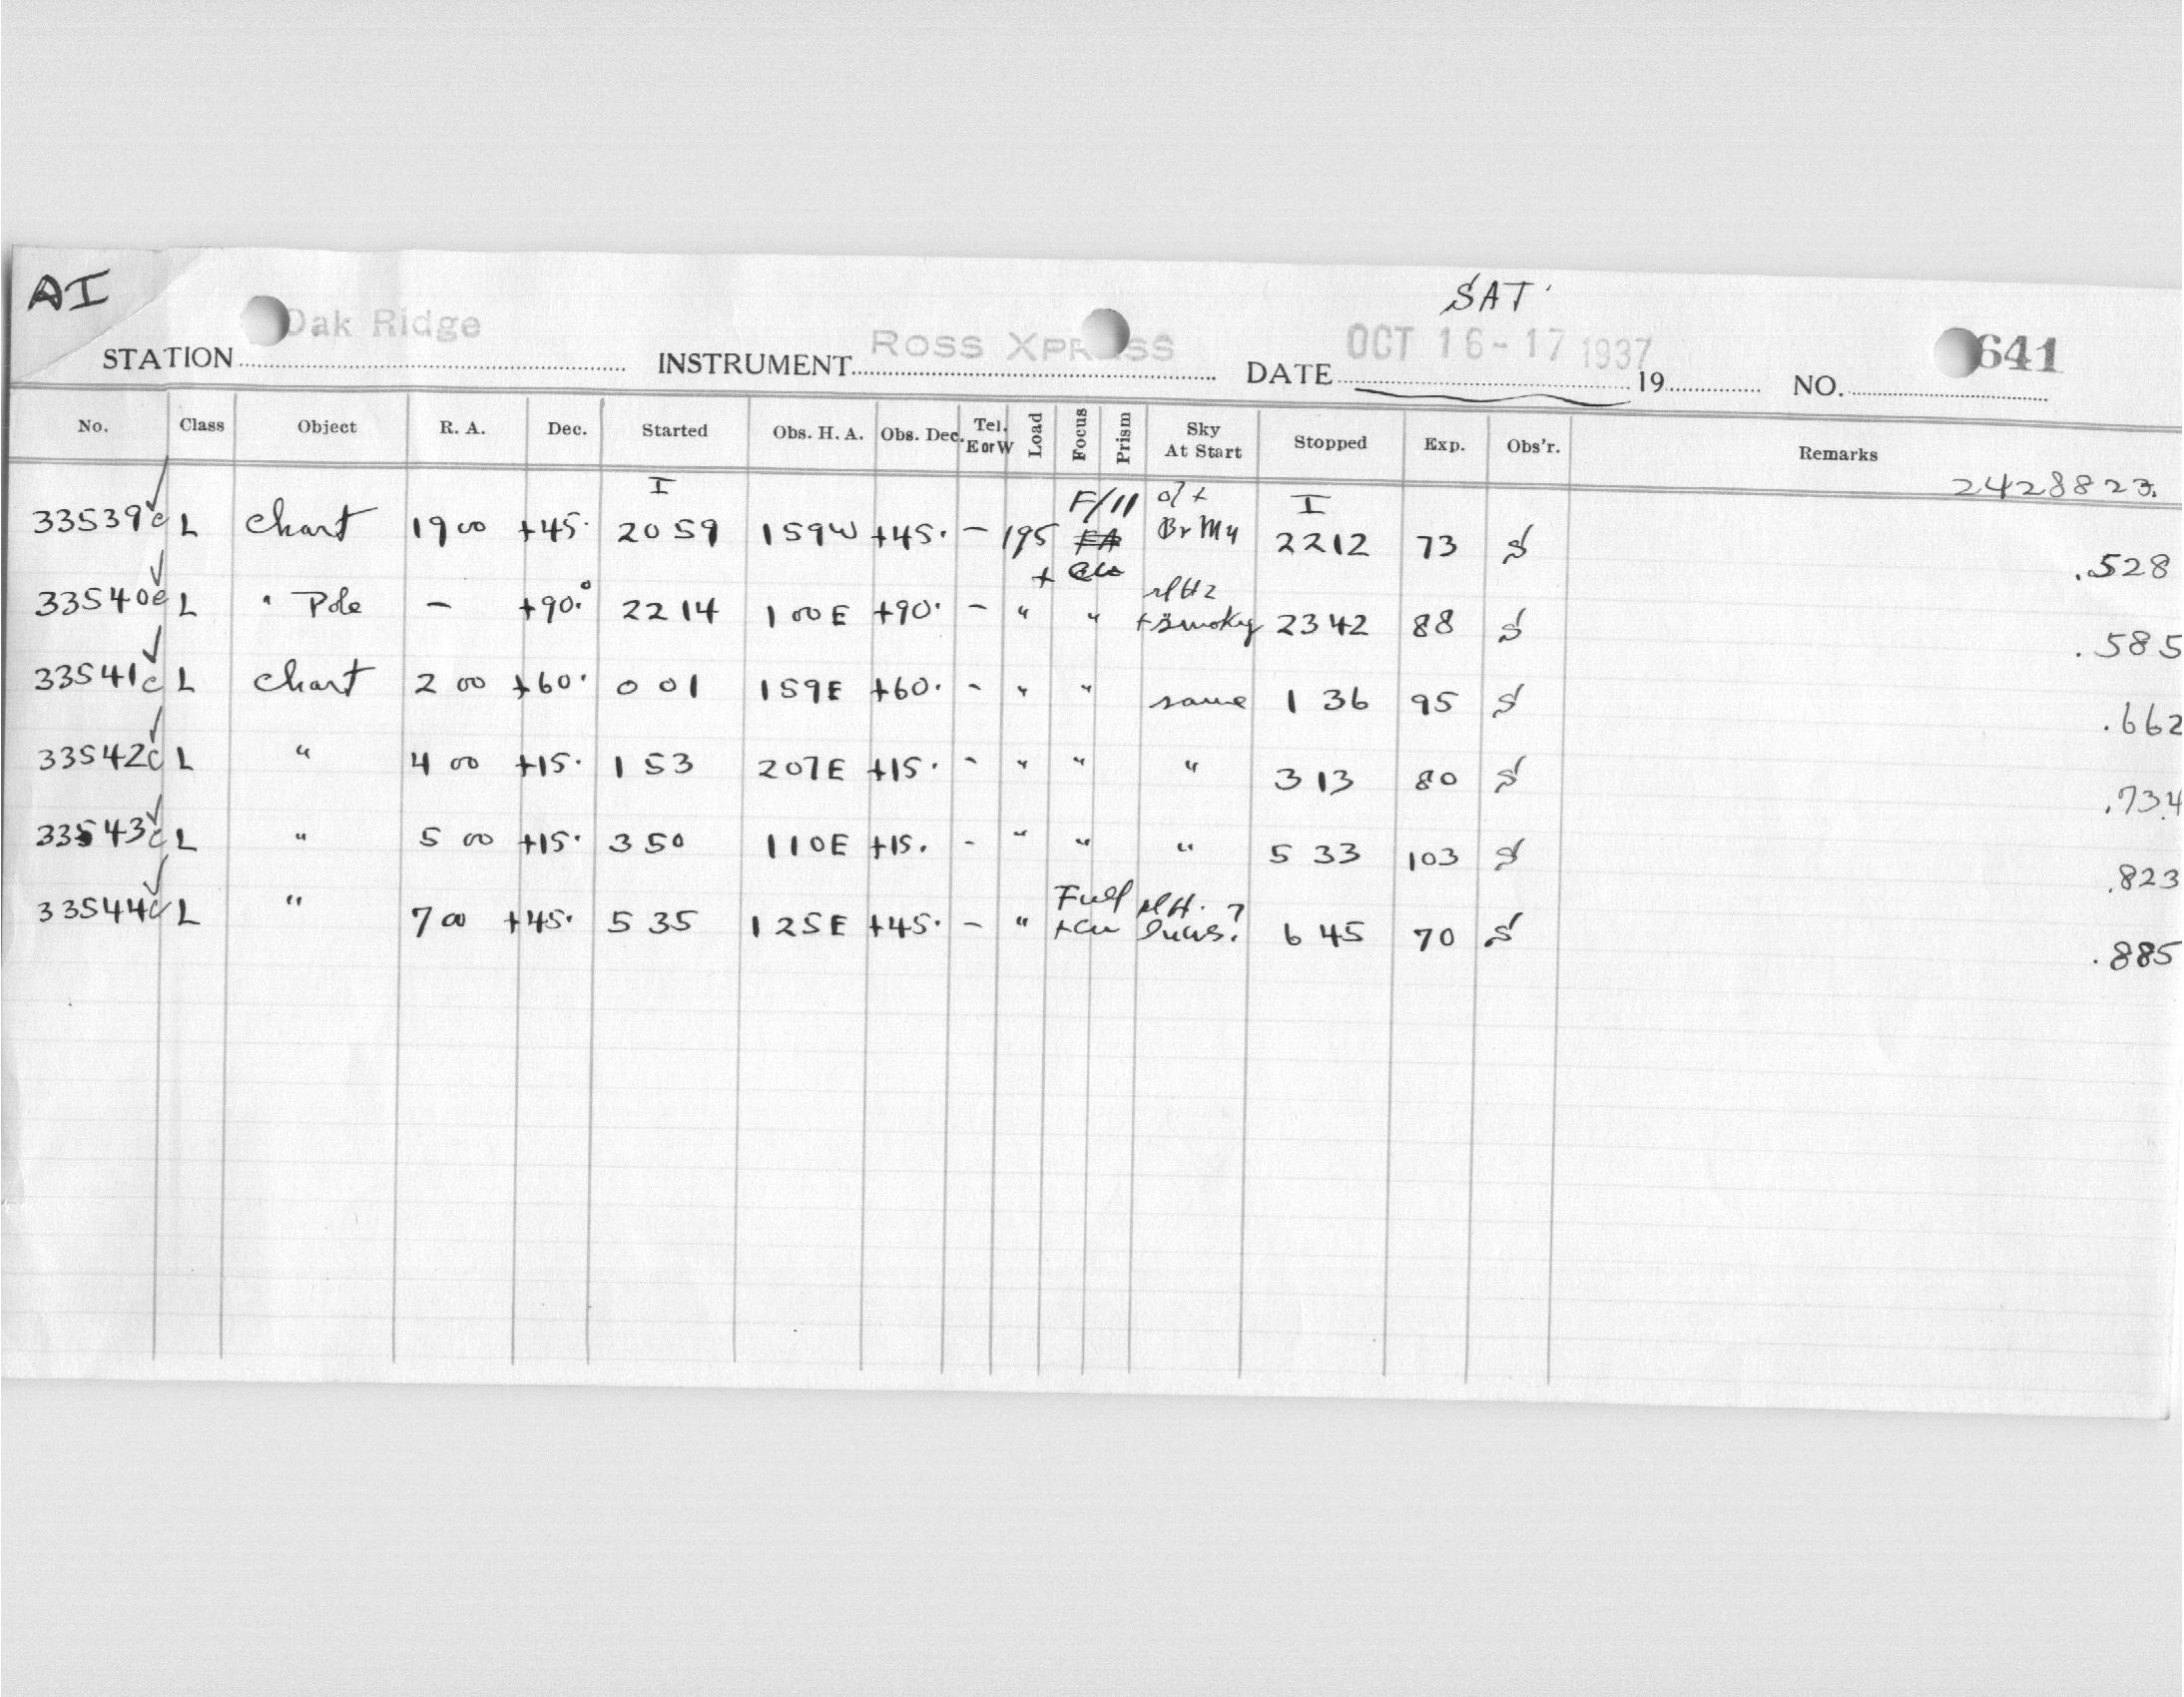 AI
SAT.
STATION Oak Ridge INSTRUMENT ROSS XPRESS DATE OCT 16-17 1937 19 NO. 641
No. Class Object R. A. Dec. Started Obs. H. A. Obs. Dec. Tel. E or W Load Focus Prism Sky At Start Stopped Exp. Obs'r. Remarks
2428823.
33539c L Chart 19 00 +45. I 20 59 1 59 W +45. - 195 F/11 Br My I 22 12 73 S .528
33540c L " Pole - +90.° 22 14 1 00 E +90. - " " Hz + Smoky 23 42 88 S .585
33541c L Chart 2 00 +60. 0 01 1 59 E +60. - " " same 1 36 95 S .662
33542c L " 4 00 +15. 1 53 2 07 E +15. - " " " 3 13 80 S .734
33543c L " 5 00 +15. 3 50 1 10 E +15. - " " " 5 33 103 S .823
33544c L " 7 00 +45. 5 35 1 25 E +45. - " Full 6 45 70 S .885